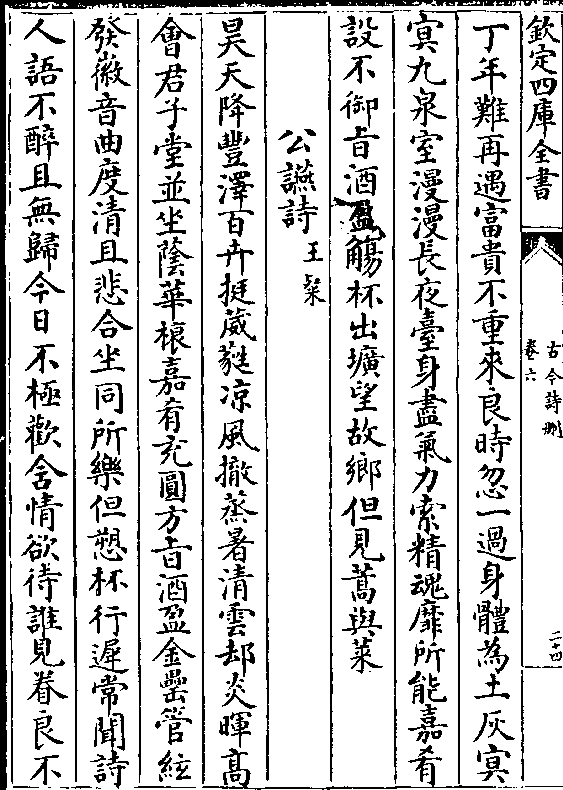 欽定四庫全書
古今詩刪
卷六
二十四
丁年難再遇富貴不重來良時忽一過身體為土灰㝠
㝠九泉室漫漫長夜臺身盡氣力索精魂靡所能嘉肴
設不御旨酒盈觴杯出壙望故鄉但見蒿與萊
公讌詩王粲
昊天降豐澤百卉挺葳蕤凉風撤蒸暑清雲却炎暉髙
㑹君子堂並坐䕃華榱嘉肴充圓方旨酒盈金罍管絃
發徽音曲度清且悲合坐同所樂但愬杯行遲常聞詩
人語不醉且無歸今日不極歡含情欲待誰見眷良不